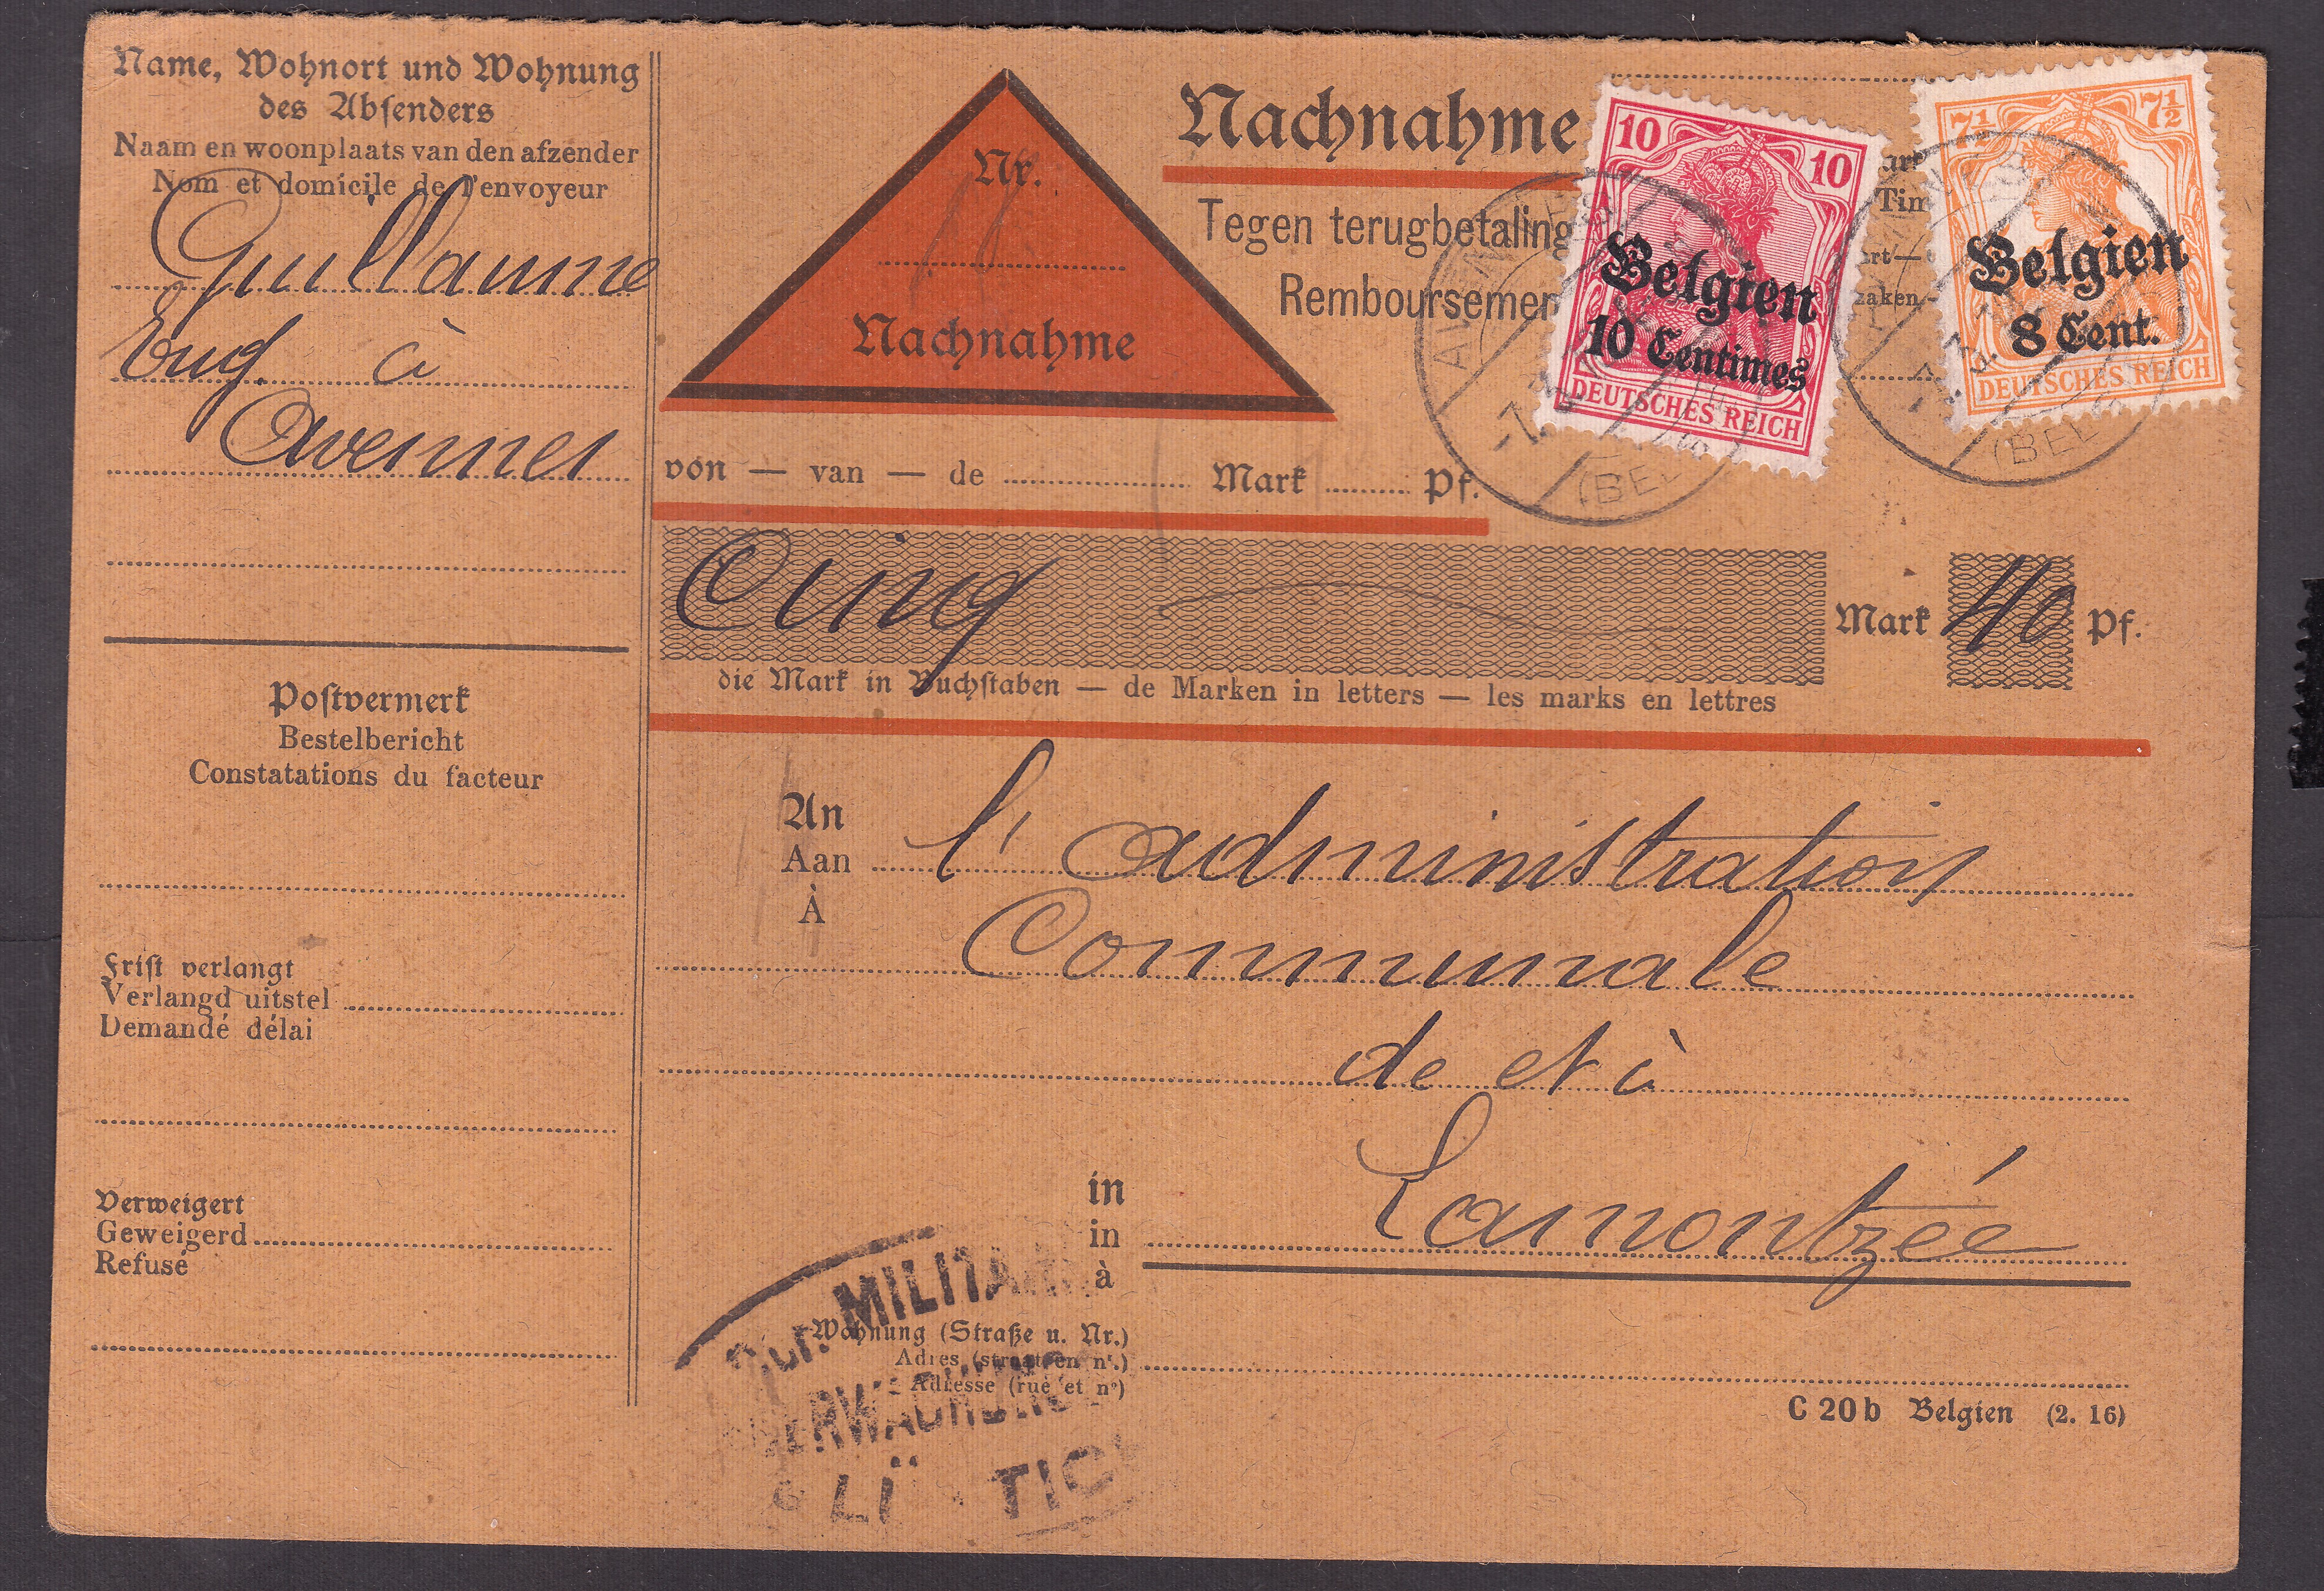 Name, Wohnort und Wohnung
des Absenders
Naam en woonplaats van den afzender
Nom et domicile de l'envoyeur
Guillaume
Eug. à
Avennes
Postvermerk
Bestelbericht
Constatations du facteur
Frist verlangt
Verlangd uitstel
Demandé délai
Verweigert
Geweigerd
Refusé
Nr.
Nachnahme
Nachnahme
Tegen terugbetaling
Remboursemen
10 10
Belgien
10 Centimes
DEUTSCHES REICH
7½ 7½
Belgien
8 Cent.
DEUTSCHES REICH
von — van — de Mark Pf.
Cinq Mark 40 Pf.
die Mark in Buchstaben — de Marken in letters — les marks en lettres
An
Aan
À
l'administration
Communale
de et à
in
in
à
Lamontzée
Wohnung (Straße u. Nr.)
Adres (straat en nr.)
Adresse (rue et no)
MILITÄR
C 20 b Belgien (2. 16)